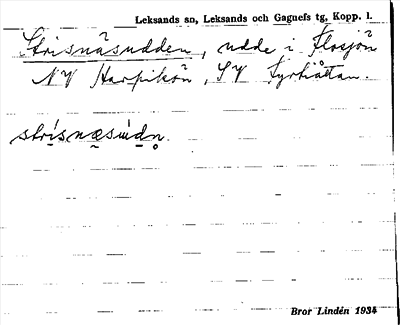 Leksands sn, Leksands och Gagnefs tg, Kopp. l.
Strisnäsudden, udde i Flosjön
NV Harpikön, SV Fyrhättan.
strisnæsudn.
Bror Lindén 1934